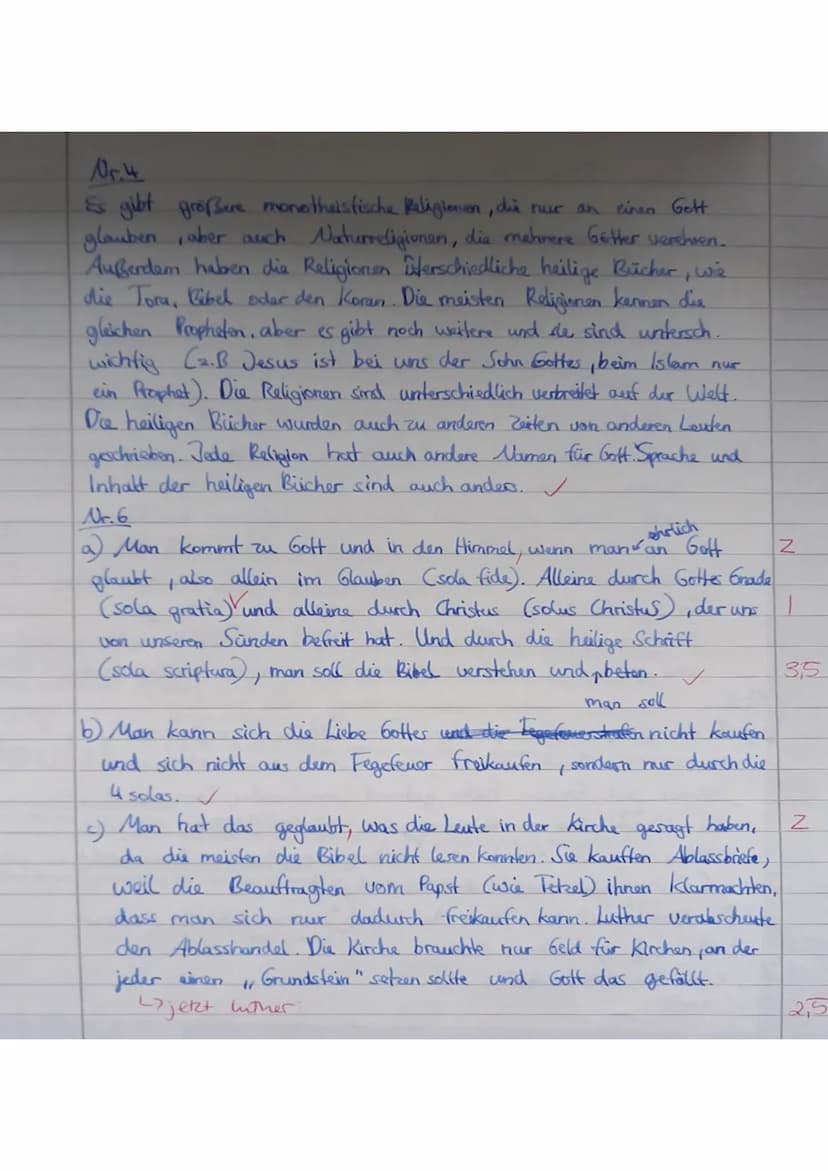 Nr. 4
Es gibt größere monotheistische Religionen, die nur an einen Gott
glauben, aber auch Naturreligionen, die mehrere Götter verehren.
Außerdem haben die Religionen unterschiedliche heilige Bücher, wie
die Tora, Bibel oder den Koran. Die meisten Religionen kennen die
gleichen Propheten, aber es gibt noch weitere und sie sind untersch.
wichtig (z.B Jesus ist bei uns der Sohn Gottes, beim Islam nur
ein Prophet). Die Religionen sind unterschiedlich verbreitet auf der Welt.
Die heiligen Bücher wurden auch zu anderen Zeiten von anderen Leuten
geschrieben. Jede Religion hat auch andere Namen für Gott. Sprache und
Inhalt der heiligen Bücher sind auch anders. ✓
Nr. 6
ehrlich
a) Man kommt zu Gott und in den Himmel, wenn man an Gott 2
glaubt, also allein im Glauben (sola fide). Alleine durch Gottes Gnade
(sola gratia) ✓ und alleine durch Christus (solus Christus), der uns 1
von unseren Sünden befreit hat. Und durch die heilige Schrift
(sola scriptura), man soll die Bibel verstehen und beten. ✓ 3,5
man soll
b) Man kann sich die Liebe Gottes und die Fegefeuerstrafen nicht kaufen
und sich nicht aus dem Fegefeuer freikaufen, sondern nur durch die
4 solas. ✓
c) Man hat das geglaubt, was die Leute in der Kirche gesagt haben, 2
da die meisten die Bibel nicht lesen konnten. Sie kauften Ablassbriefe,
weil die Beauftragten vom Papst (wie Tetzel) ihnen klarmachten,
dass man sich nur dadurch freikaufen kann. Luther verabscheute
den Ablasshandel. Die Kirche brauchte nur Geld für Kirchen, an der
jeder einen „Grundstein" setzen sollte und Gott das gefällt.
↳ jetzt Luther 2,5